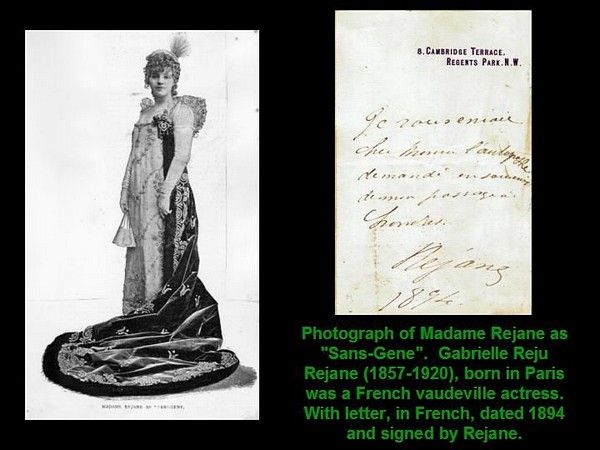 MADAME REJANE AS
8. CAMBRIDGE TERRACE,
REGENTS PARK. N.W.
Je vous envoie
cher l'autographe
demandé en souvenir
de mon passage à
Londres.
Rejane
1894.
Photograph of Madame Rejane as
"Sans-Gene". Gabrielle Reju
Rejane (1857-1920), born in Paris
was a French vaudeville actress.
With letter, in French, dated 1894
and signed by Rejane.